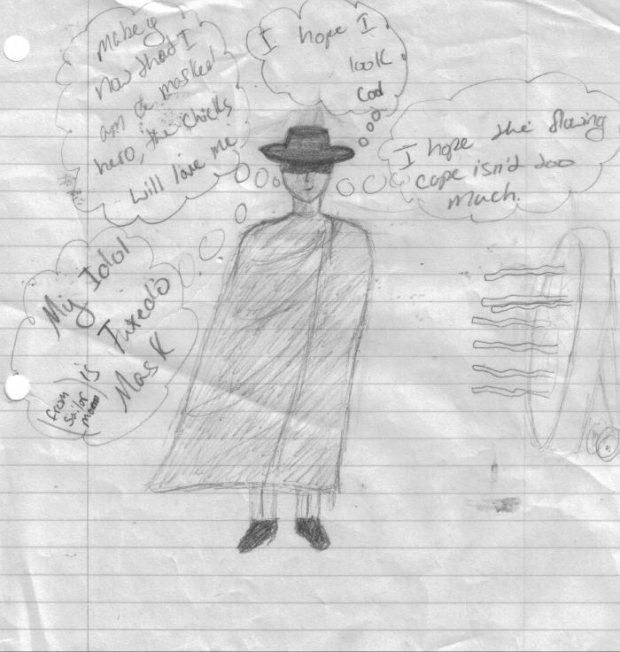 Mabey
now that I
am a masked
hero, the chicks
will love me
I hope I
look
Cool
I hope the flowing
cape isn't too
much.
My Idol
is Tuxedo
Mask
(from
Sailor
moon)